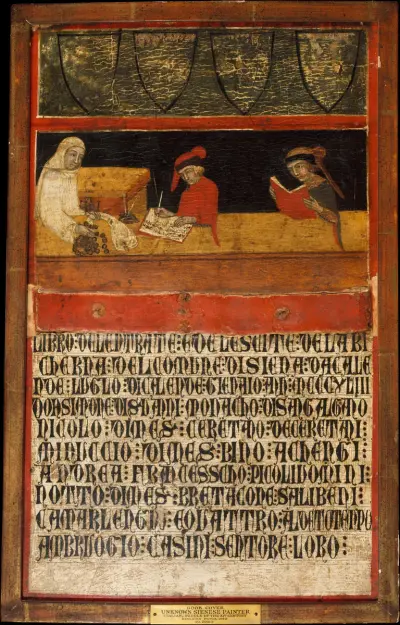 LIBRO:DELENTRATE:EDELESCITE:DELABI
CHERNA:DELCOMUNE:DISIENA:DACALE
NDE:LUGLO:DICALENDEGIENAIO:AN
DON:SIMONE:DI:MONACHO:DISANGALGANO
NICOLO:DIMES:CERETANO:DECERETANI
MINUCCIO:DIMES:BINO:ACHENGI
ANDREA:FRANCESSCHO:PICOLIUOMINI
NOTTO:DIMES:BRETACONE:SALIBENI:
CAMARLENGHI:EQUATTRO:ALDETOTENPO
AMBRUOGIO:CASINI:SCNTORE:LORO:
BOOK COVER
UNKNOWN SIENESE PAINTER